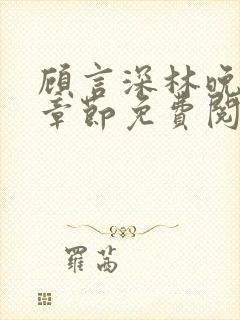 顾言深林晚
章节免费阅
羅茜